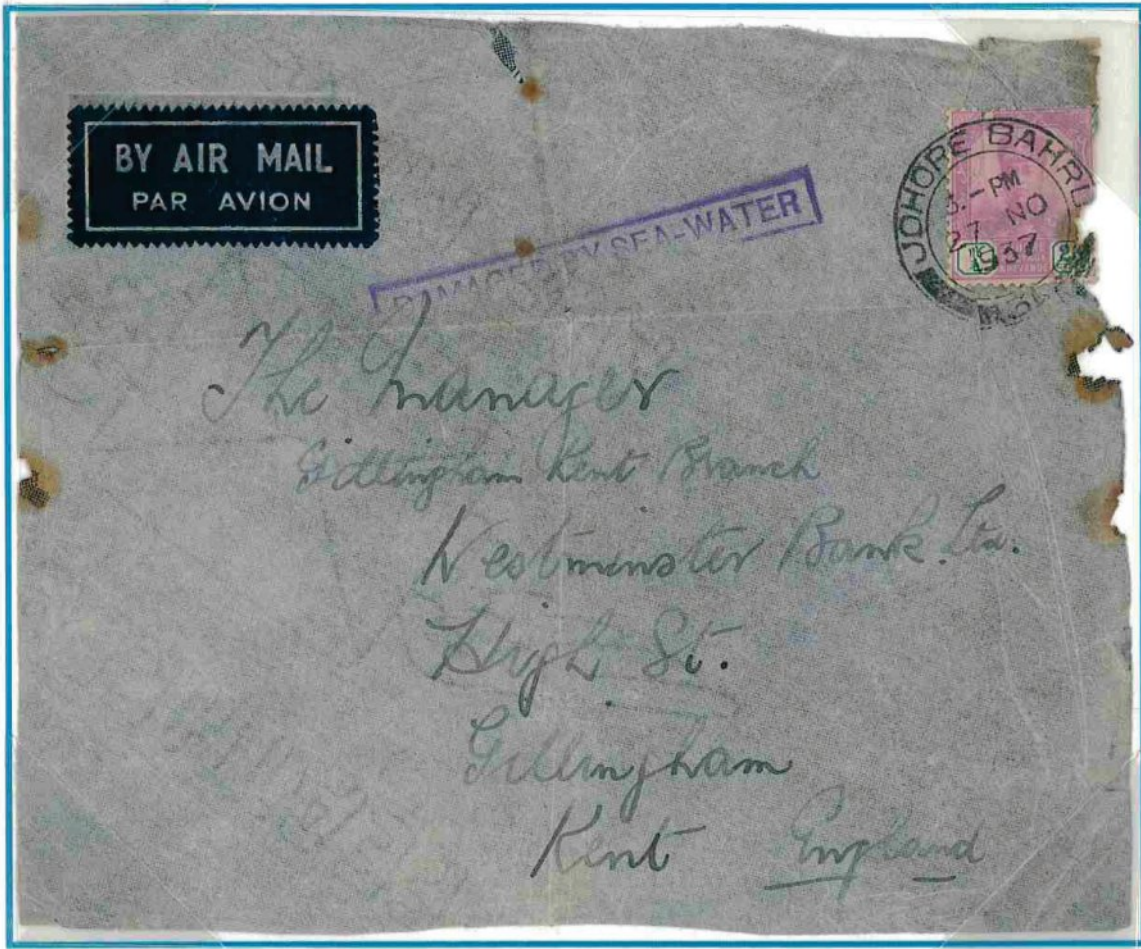 BY AIR MAIL
PAR AVION
DAMAGED BY SEA-WATER
JOHORE BAHRU
PM
27 NO
1937
The Manager
Gillingham Kent Branch
Westminster Bank. Ltd.
High St.
Gillingham
Kent England